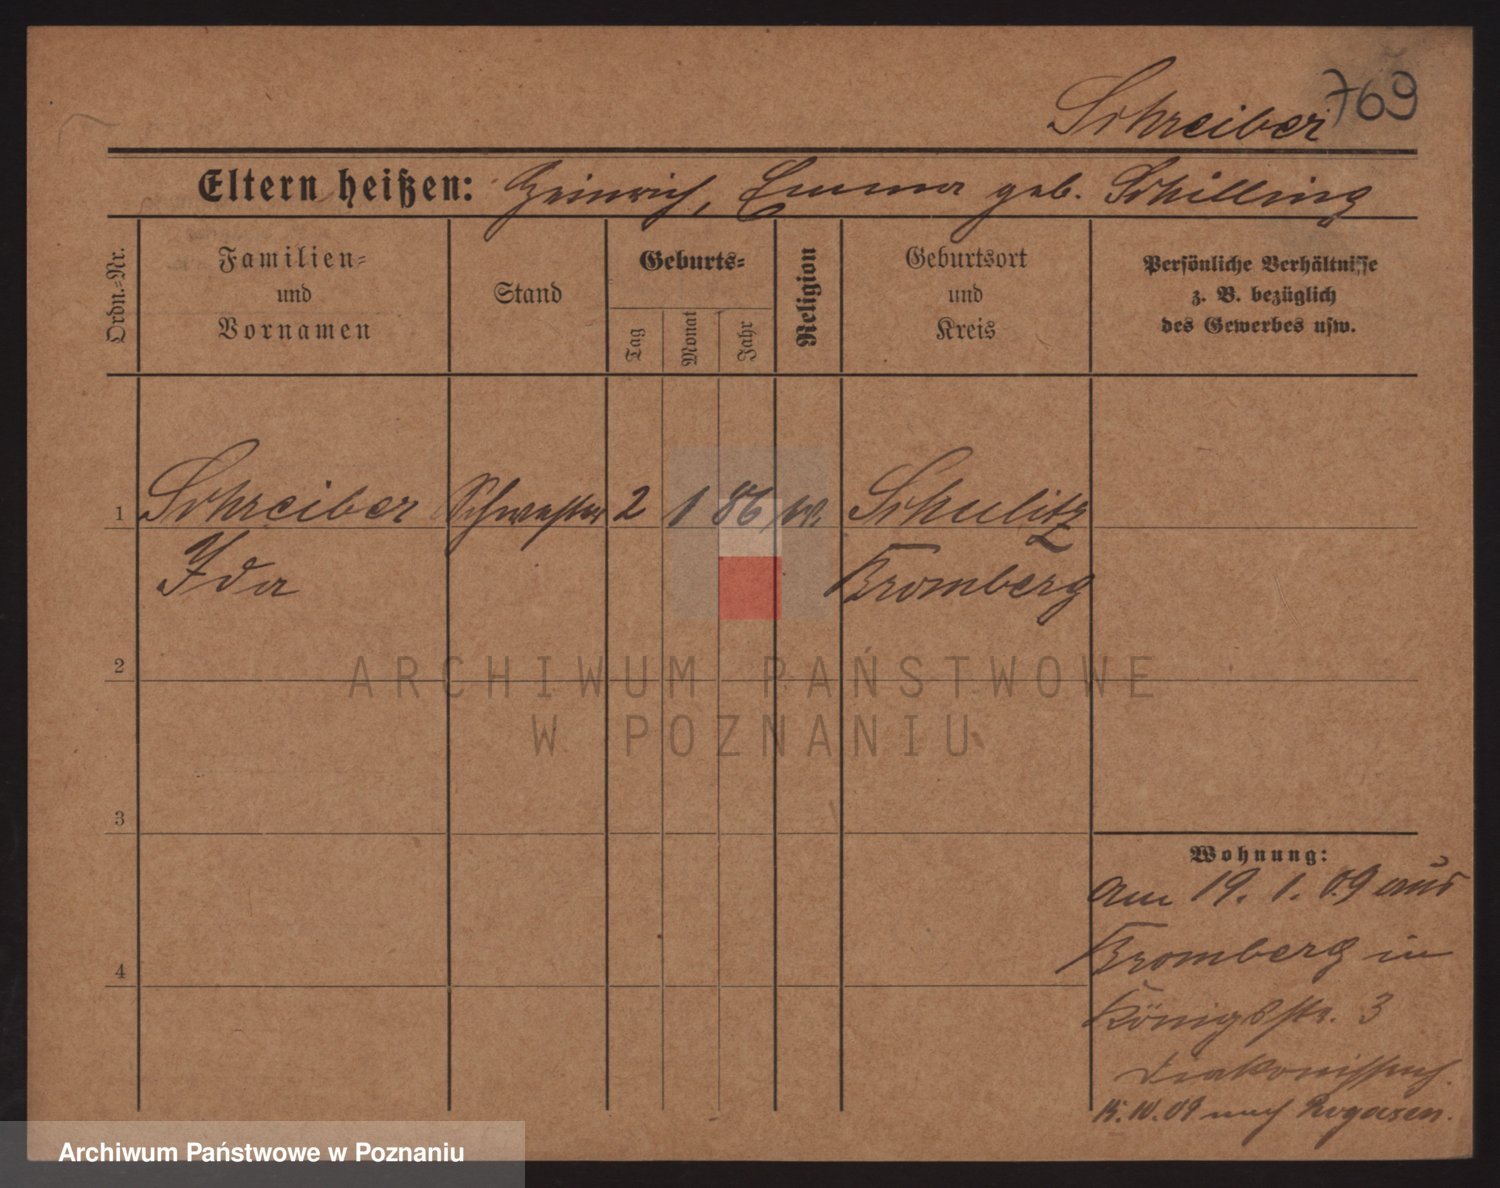 Schreiber 769
Eltern heißen: Heinrich, Emma geb. Schilling
Ordn.-Nr.
Familien-
und
Vornamen
Stand
Geburts-
Tag
Monat
Jahr
Religion
Geburtsort
und
Kreis
Persönliche Verhältnisse
z. B. bezüglich
des Gewerbes usw.
1 Schreiber Schwester 2 1 86 Schulitz
Ida Bromberg
2
3
4
Wohnung:
am 19. 1. 09 aus
Bromberg in
Königsstr. 3
09 nach Rogasen.
ARCHIWUM PAŃSTWOWE
W POZNANIU
Archiwum Państwowe w Poznaniu